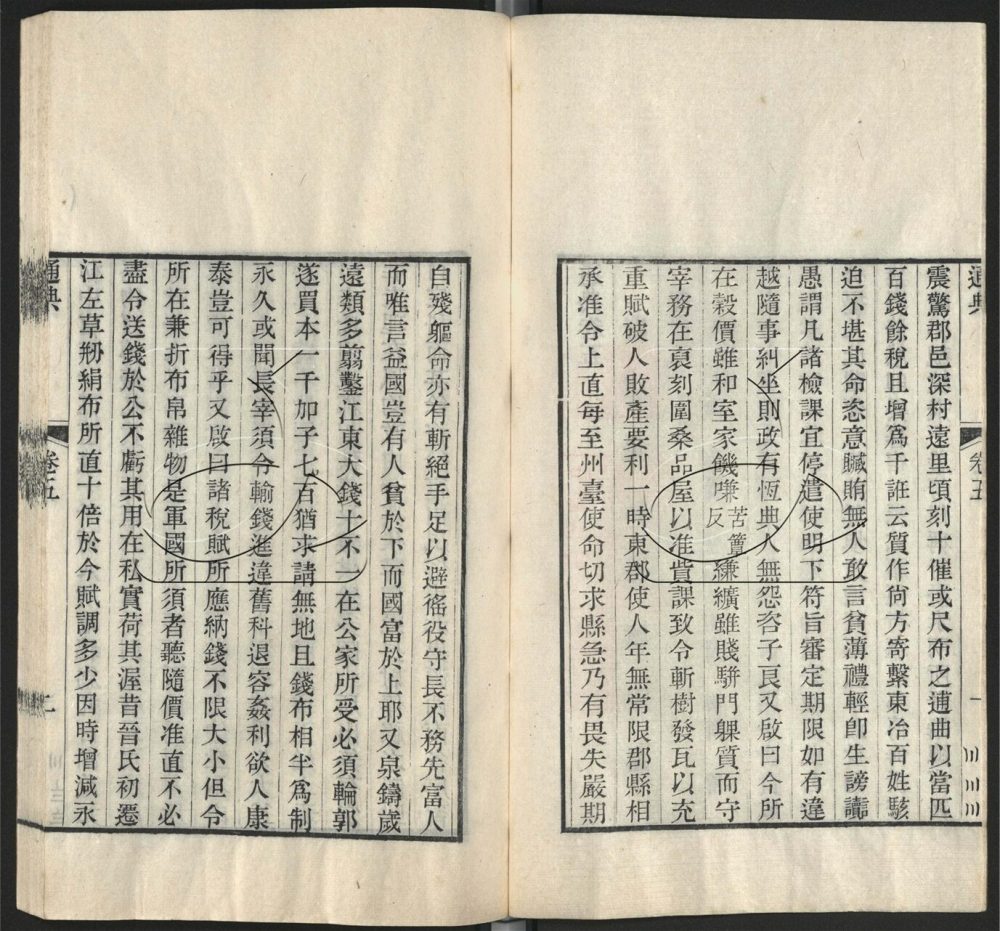 通典
卷五
一
震驚郡邑深村遠里頃刻十催或尺布之逋曲以當匹
百錢餘稅且增爲千誑云質作尙方寄繫東冶百姓駭
迫不堪其命恣意贓賄無人敢言貧薄禮輕卽生謗讟
愚謂凡諸檢課宜停遣使明下符旨審定期限如有違
越隨事糾坐則政有恆典人無怨咨子良又啟曰今所
在穀價雖和室家饑嗛苦簟反縑纊雖賤駢門躶質而守
宰務在裒刻圍桑品屋以准貲課致令斬樹發瓦以充
重賦破人敗產要利一時東郡使人年無常限郡縣相
承准令上直每至州臺使命切求縣急乃有畏失嚴期
自殘軀命亦有斬絕手足以避徭役守長不務先富人
而唯言益國豈有人貧於下而國富於上耶又泉鑄歲
遠類多翦鑿江東大錢十不一在公家所受必須輪郭
遂買本一千加子七百猶求請無地且錢布相半爲制
永久或聞長宰須令輸錢進違舊科退容姦利欲人康
泰豈可得乎又啟曰諸稅賦所應納錢不限大小但令
所在兼折布帛雜物是軍國所須者聽隨價准直不必
盡令送錢於公不虧其用在私實荷其渥昔晉氏初遷
江左草刱絹布所直十倍於今賦調多少因時增減永
通典
卷五